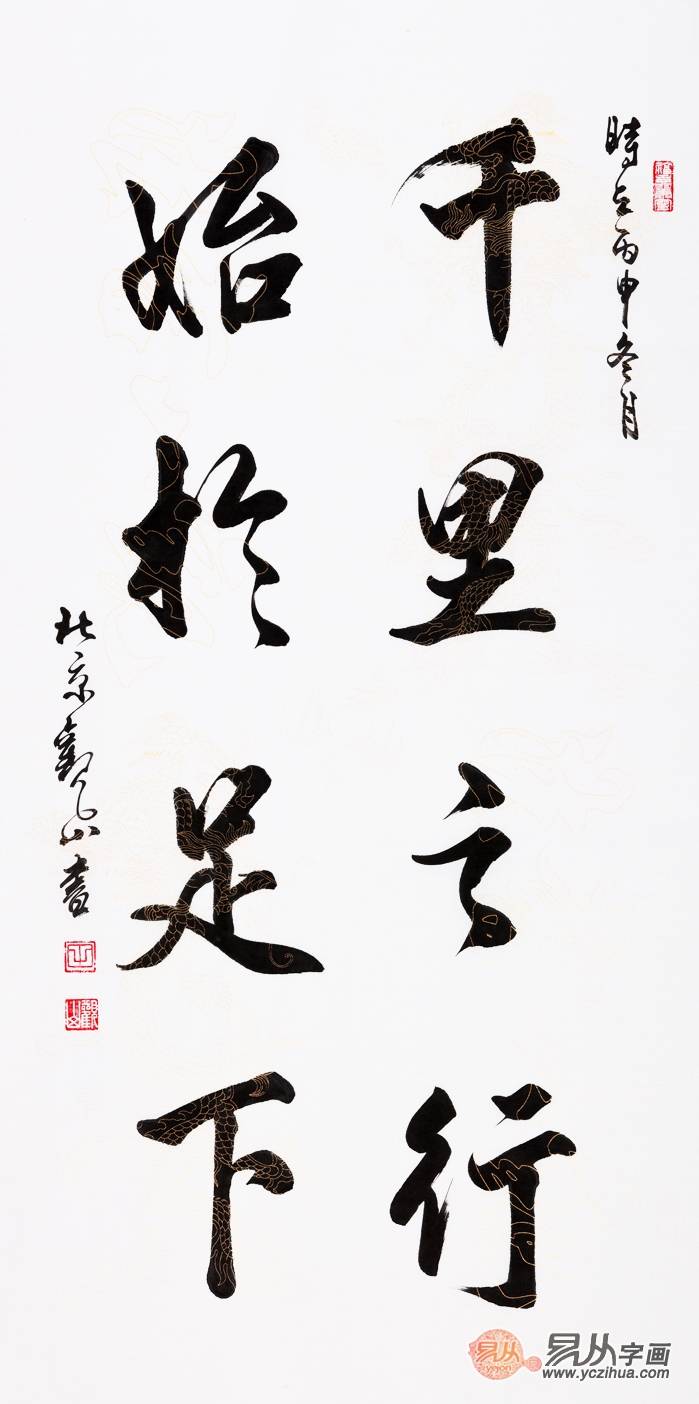 時在丙申冬月
千里之行
始於足下
北京觀山書
易从
yicon
易从字画
www.yczihua.com